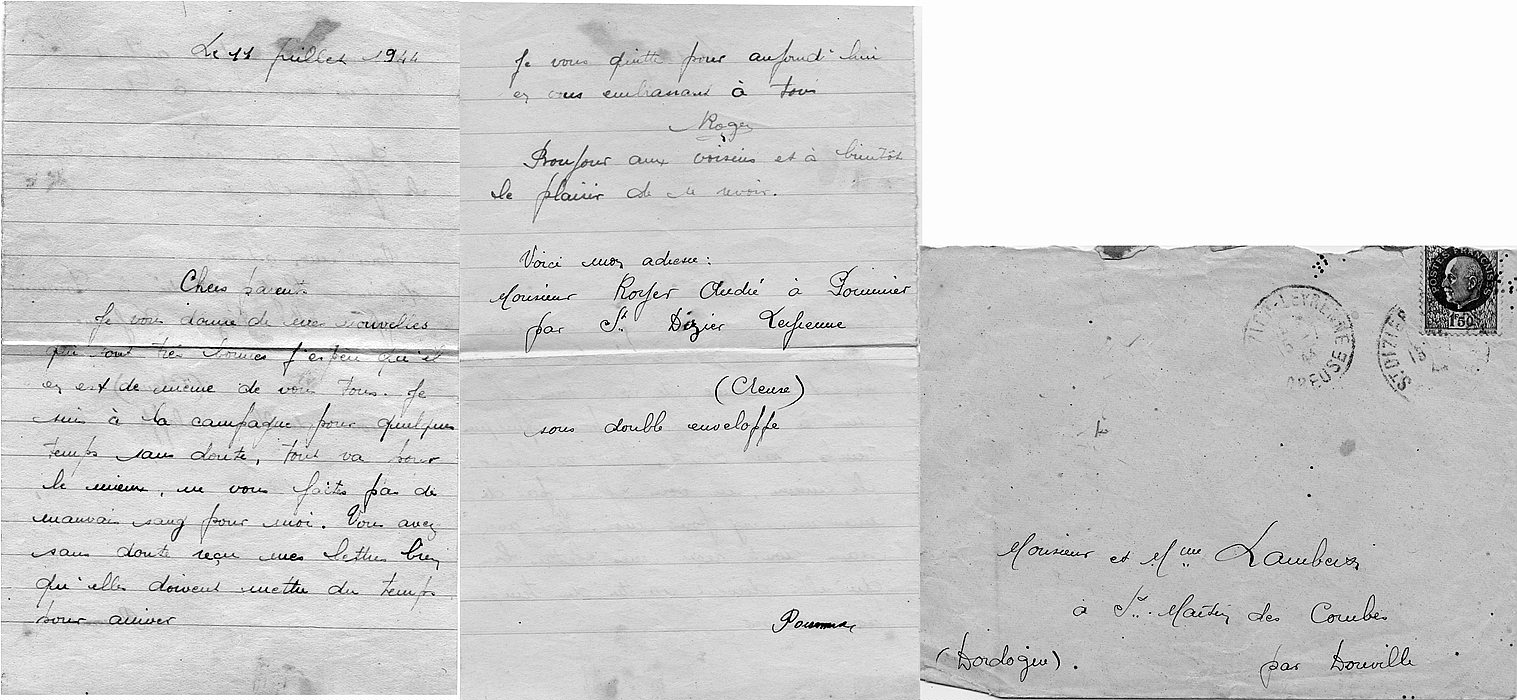 Le 11 juillet 1944
Chers parents
Je vous donne de mes nouvelles
qui sont très bonnes j'espère qu'il
en est de même de vous tous. Je
suis à la campagne pour quelques
temps sans doute, tout va pour
le mieux, ne vous faites pas de
mauvais sang pour moi. Vous avez
sans doute reçu mes lettres bien
qu'elles doivent mettre du temps
pour arriver
Je vous quitte pour aujourd'hui
en vous embrassant à tous
Roger
Bonjour aux voisins et à bientôt
le plaisir de se revoir.
Voici mon adresse :
Monsieur Royer André à Pommier
par St Dizier Leyrenne
(Creuse)
sous double enveloppe
POSTES FRANÇAISES
1F50
ZIER-LEYRENNE
CREUSE
ST DIZIER
Monsieur et Mme Lambert
à St Martin des Combes
par Douville
(Dordogne).